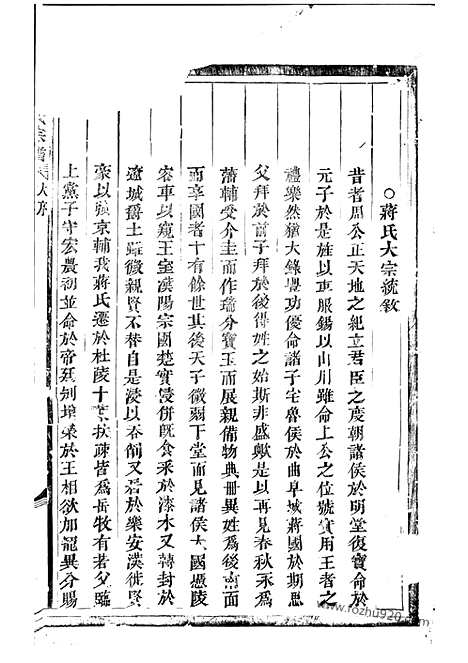 蔣氏大宗統敘
昔者周公正天地之紀立君臣之度朝諸侯於明堂復寶命於
元子於是旌以車服錫以山川雖命上公之位號實用王者之
禮樂然猶大錄功優命諸子宅魯侯於曲阜域蔣國於期思
父拜於前子拜於後得姓之始斯非盛歟是以再見春秋永為
藩輔受介圭而作瑞分寶玉而展親備物典冊異姓為後南面
而享國者十有餘世其後天子微弱下堂而見諸侯大國憑陵
容車以窺王室漢陽宗國楚實侵併既食采於漆木又轉封於
遼城爵土雖微親賢不替自是浸以吞削又居於樂安漢徙賢
豪以強京輔我蔣氏遷於杜陵十葉扶疎皆為岳牧有若父臨
上黨子守宏農初並命於帝廷剖符榮於王相欲加寵異分賜
大宗譜大序
www.rozhu920.com